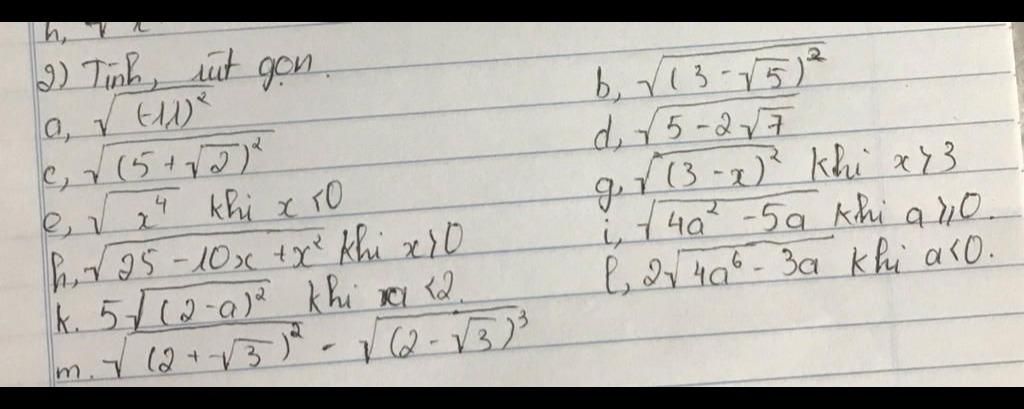 h, √x
2) Tính, rút gọn.
a, √(-11)²
b, √(3-√5)²
c, √(5+√2)²
d, √5-2√7
e, √x⁴ khi x<0
g, √(3-x)² khi x>3
h, √25-10x+x² khi x>0
i, √4a²-5a khi a≥0.
k. 5√(2-a)² khi a<2.
l, 2√4a⁶-3a khi a<0.
m. √(2+√3)² - √(2-√3)³